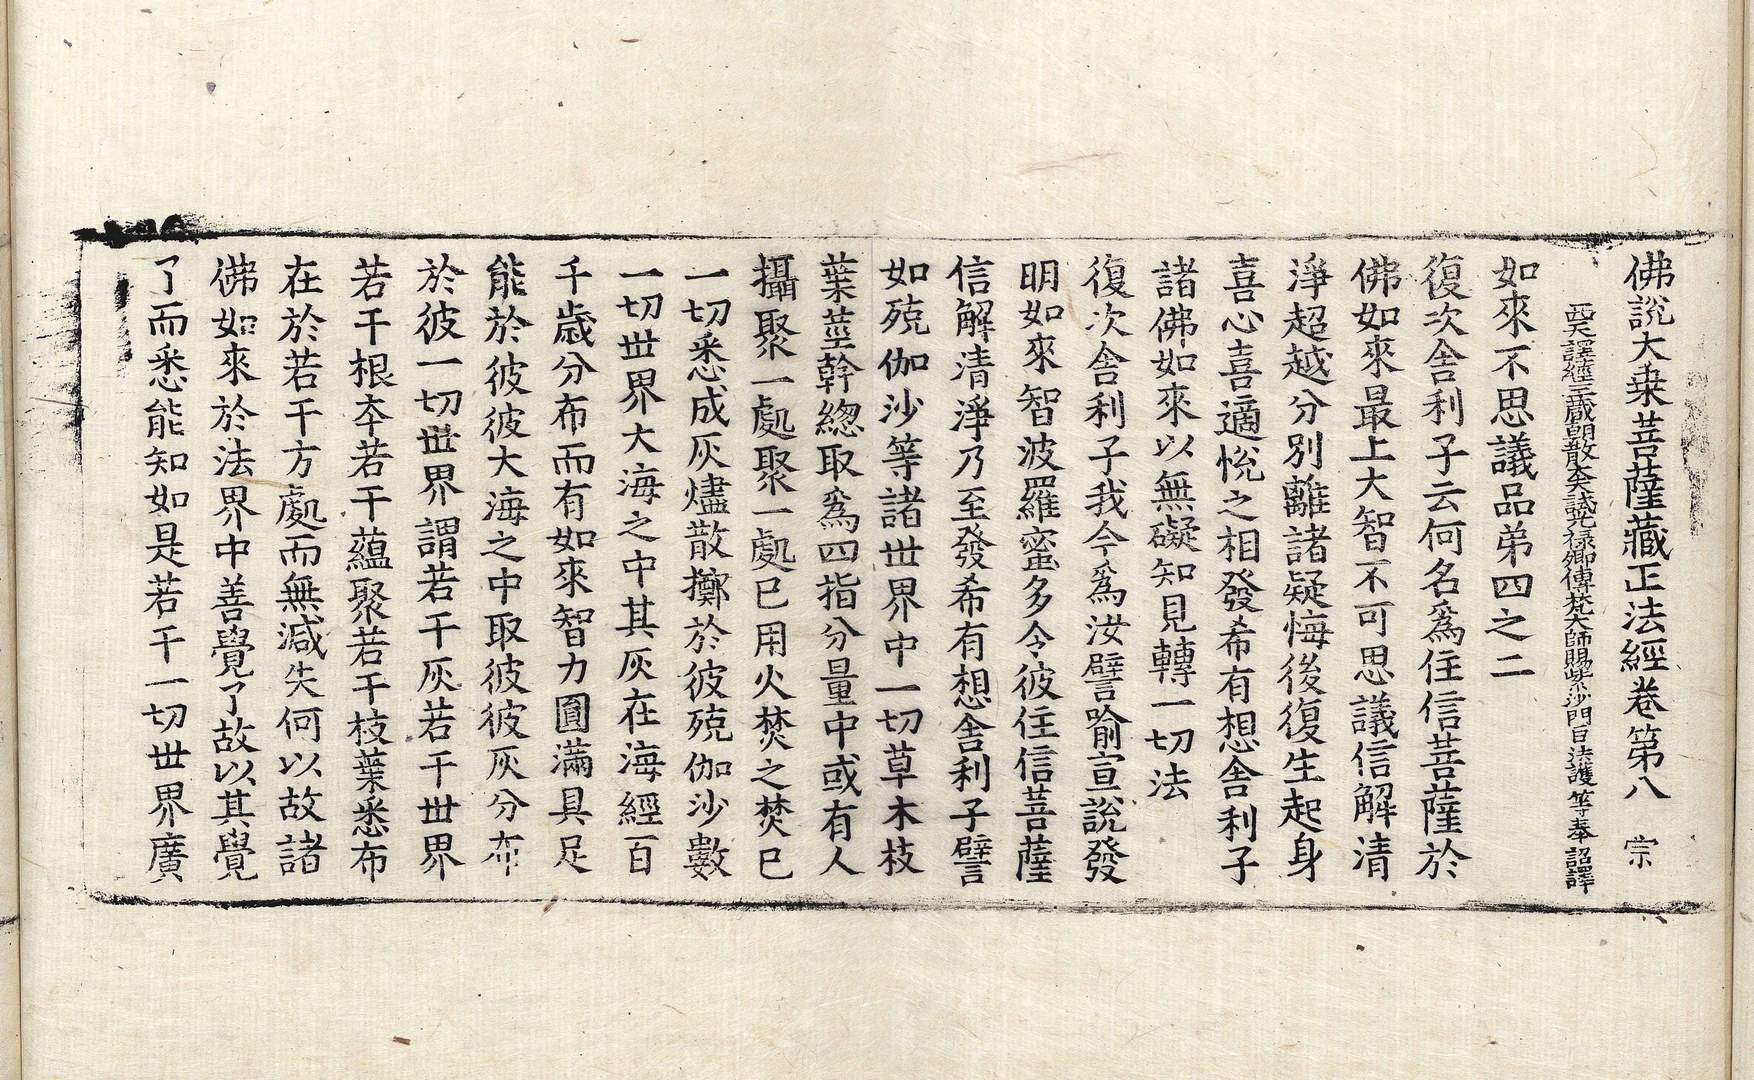 佛說大乗菩薩藏正法經卷第八　宗
西天譯經三藏朝散大夫試光禄卿傳梵大師賜紫沙門臣法護等奉　詔譯
如來不思議品弟四之二
復次舎利子云何名爲住信菩薩於
佛如來最上大智不可思議信解清
淨超越分別離諸疑悔後復生起身
喜心喜適恱之相發希有想舎利子
諸佛如來以無礙知見轉一切法
復次舎利子我今爲汝譬喻宣說發
明如來智波羅蜜多令彼住信菩薩
信解清淨乃至發希有想舎利子譬
如殑伽沙等諸世界中一切草木枝
葉莖幹緫取爲四指分量中或有人
攝聚一處聚一處已用火焚之焚已
一切悉成灰燼散擲於彼殑伽沙數
一切世界大海之中其灰在海經百
千歳分布而有如來智力圓滿具足
能於彼彼大海之中取彼彼灰分布
於彼一切世界謂若干灰若干世界
若干根夲若干蘊聚若干枝葉悉布
在於若干方處而無減失何以故諸
佛如來於法界中善覺了故以其覺
了而悉能知如是若干一切世界廣